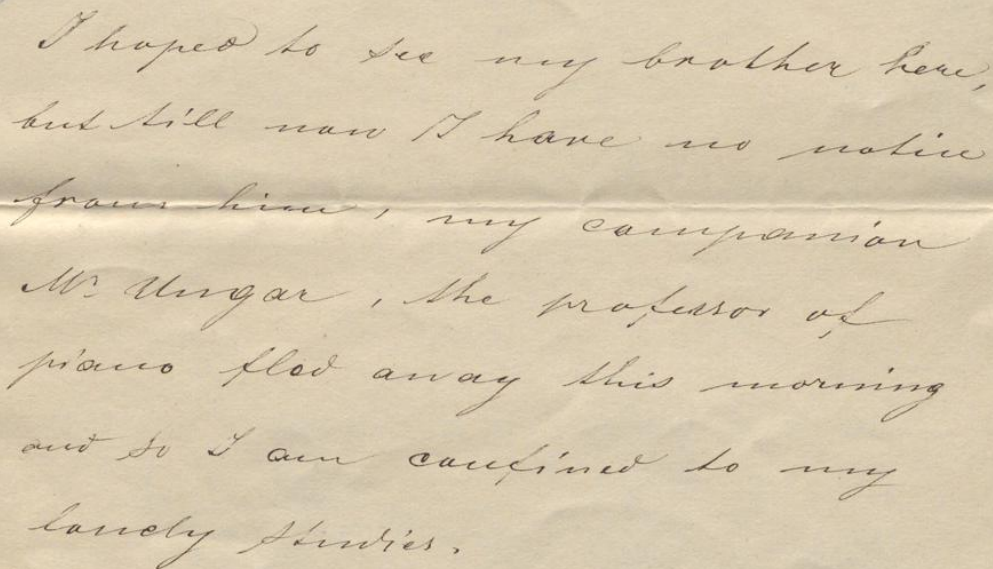 I hoped to see my brother here,
but till now I have no notice
from him, my companion
Mr. Ungar, the professor of
piano fled away this morning
and so I am confined to my
lonely studies.